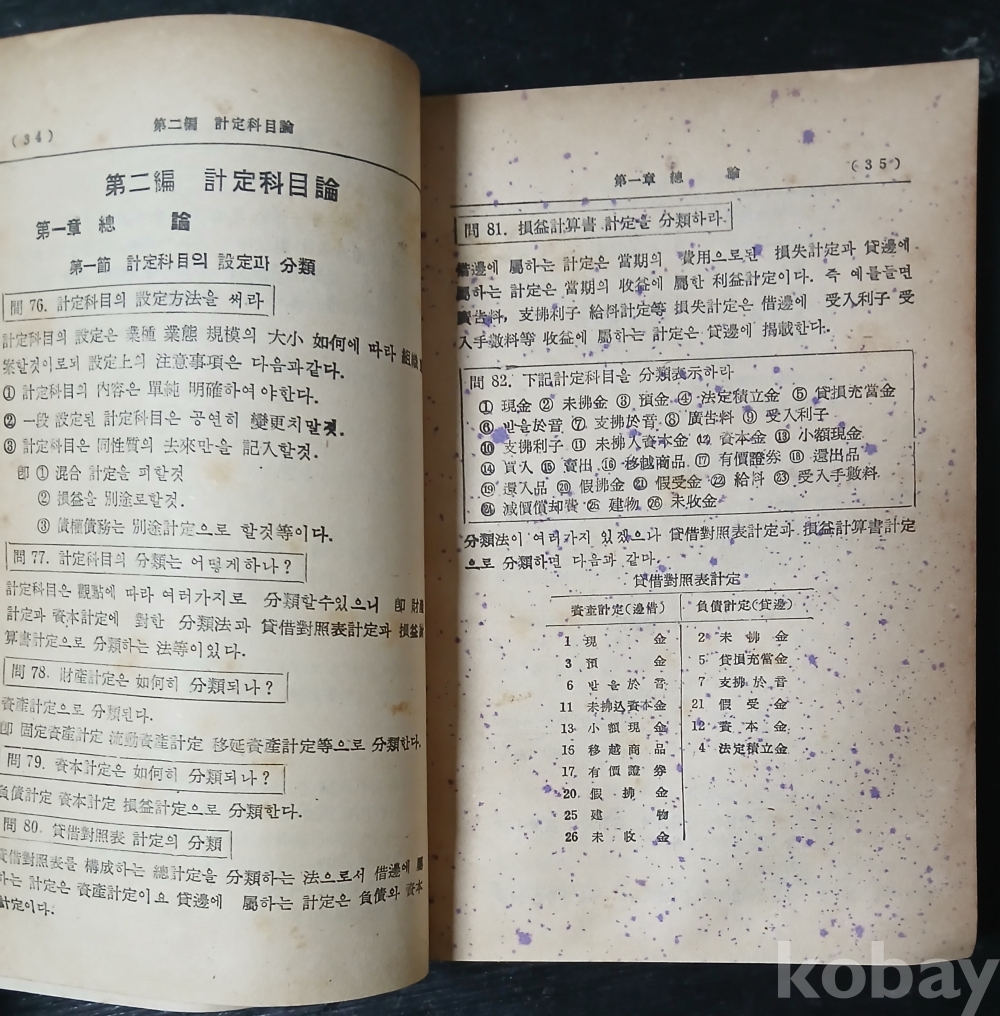 (34) 第二編 計定科目論
第二編 計定科目論
第一章 總 論
第一節 計定科目의 設定과 分類
問 76. 計定科目의 設定方法을 써라
計定科目의 設定은 業種 業態 規模의 大小 如何에 따라 組織
案할것이로되 設定上의 注意事項은 다음과같다.
① 計定科目의 內容은 單純 明確하여야한다.
② 一段 設定된 計定科目은 공연히 變更치말것.
③ 計定科目은 同性質의 去來만을 記入할것.
卽 ① 混合 計定을 피할것
② 損益을 別途로할것.
③ 債權債務는 別途計定으로 할것等이다.
問 77. 計定科目의 分類는 어떻게하나?
計定科目은 觀點에 따라 여러가지로 分類할수있으니 卽 財産
計定과 資本計定에 對한 分類法과 貸借對照表計定과 損益計
算書計定으로 分類하는 法等이있다.
問 78. 財産計定은 如何히 分類되나?
資產計定으로 分類된다.
卽 固定資產計定 流動資產計定 移延資產計定等으로 分類한다.
問 79. 資本計定은 如何히 分類되나?
負債計定 資本計定 損益計定으로 分類한다.
問 80. 貸借對照表 計定의 分類
貸借對照表를 構成하는 總計定을 分類하는 法으로서 借邊에 屬
하는 計定은 資產計定이요 貸邊에 屬하는 計定은 負債와 資本
計定이다.
第一章 總 論 (35)
問 81. 損益計算書 計定을 分類하라.
借邊에 屬하는 計定은 當期의 費用으로된 損失計定과 貸邊에
屬하는 計定은 當期의 收益에 屬한 利益計定이다. 즉 예를들면
廣告料, 支拂利子 給料計定等 損失計定은 借邊에 受入利子 受
入手數料等 收益에 屬하는 計定은 貸邊에 揭載한다.
問 82. 下記計定科目을 分類表示하라
① 現金 ② 未拂金 ③ 預金 ④ 法定積立金 ⑤ 貸損充當金
⑥ 받을於音 ⑦ 支拂於音 ⑧ 廣告料 ⑨ 受入利子
⑩ 支拂利子 ⑪ 未拂入資本金 ⑫ 資本金 ⑬ 小額現金
⑭ 買入 ⑮ 賣出 ⑯ 移越商品 ⑰ 有價證券 ⑱ 還出品
⑲ 還入品 ⑳ 假拂金 ㉑ 假受金 ㉒ 給料 ㉓ 受入手數料
㉔ 減價償却費 ㉕ 建物 ㉖ 未收金
分類法이 여러가지 있겠으나 貸借對照表計定과 損益計算書計定
으로 分類하면 다음과 같다.
貸借對照表計定
資產計定(邊借) 負債計定(貸邊)
1 現 金 2 未 拂 金
3 預 金 5 貸損充當金
6 받을於音 7 支拂於音
11 未拂込資本金 21 假受金
13 小額現金 12 資本金
16 移越商品 4 法定積立金
17 有價證券
20 假拂金
25 建物
26 未收金
kobay